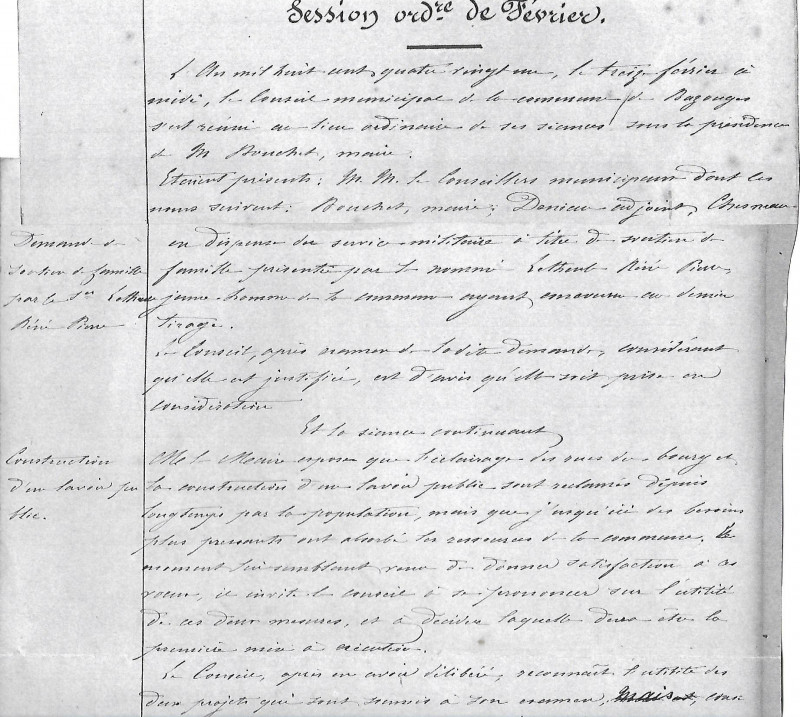 Session ordre de Février.
L'An mil huit cent quatre vingt un, le treize février à
midi, le Conseil municipal de la commune de Bazouges
s'est réuni au lieu ordinaire de ses séances sous la présidence
de M. Bouchet, maire.
Etaient présents: M. M. le Conseillers municipaux dont les
noms suivent: Bouchet, maire; Deniau adjoint, Chesneau
Demande de
soutien de famille
par le Sr
René Pierre
en dispense du service militaire à titre de soutien de
famille présentée par le nommé René Pierre,
jeune homme de la commune ayant concouru au dernier
tirage.
Le Conseil, après examen de la dite demande, considérant
qu'elle est justifiée, est d'avis qu'elle soit prise en
considération
Et la séance continuant
Construction
d'un lavoir pu
blic.
M. le Maire expose que l'éclairage des rues du bourg et
la construction d'un lavoir public sont réclamés depuis
longtemps par la population, mais que jusqu'ici des besoins
plus pressants ont absorbé les ressources de la commune. Le
moment lui semblant venu de donner satisfaction à ces
vœux, il invite le conseil à se prononcer sur l'utilité
de ces deux mesures, et à décider laquelle devra être la
première mise à exécution.
Le Conseil, après en avoir délibéré, reconnaît l'utilité des
deux projets qui sont soumis à son examen, mais